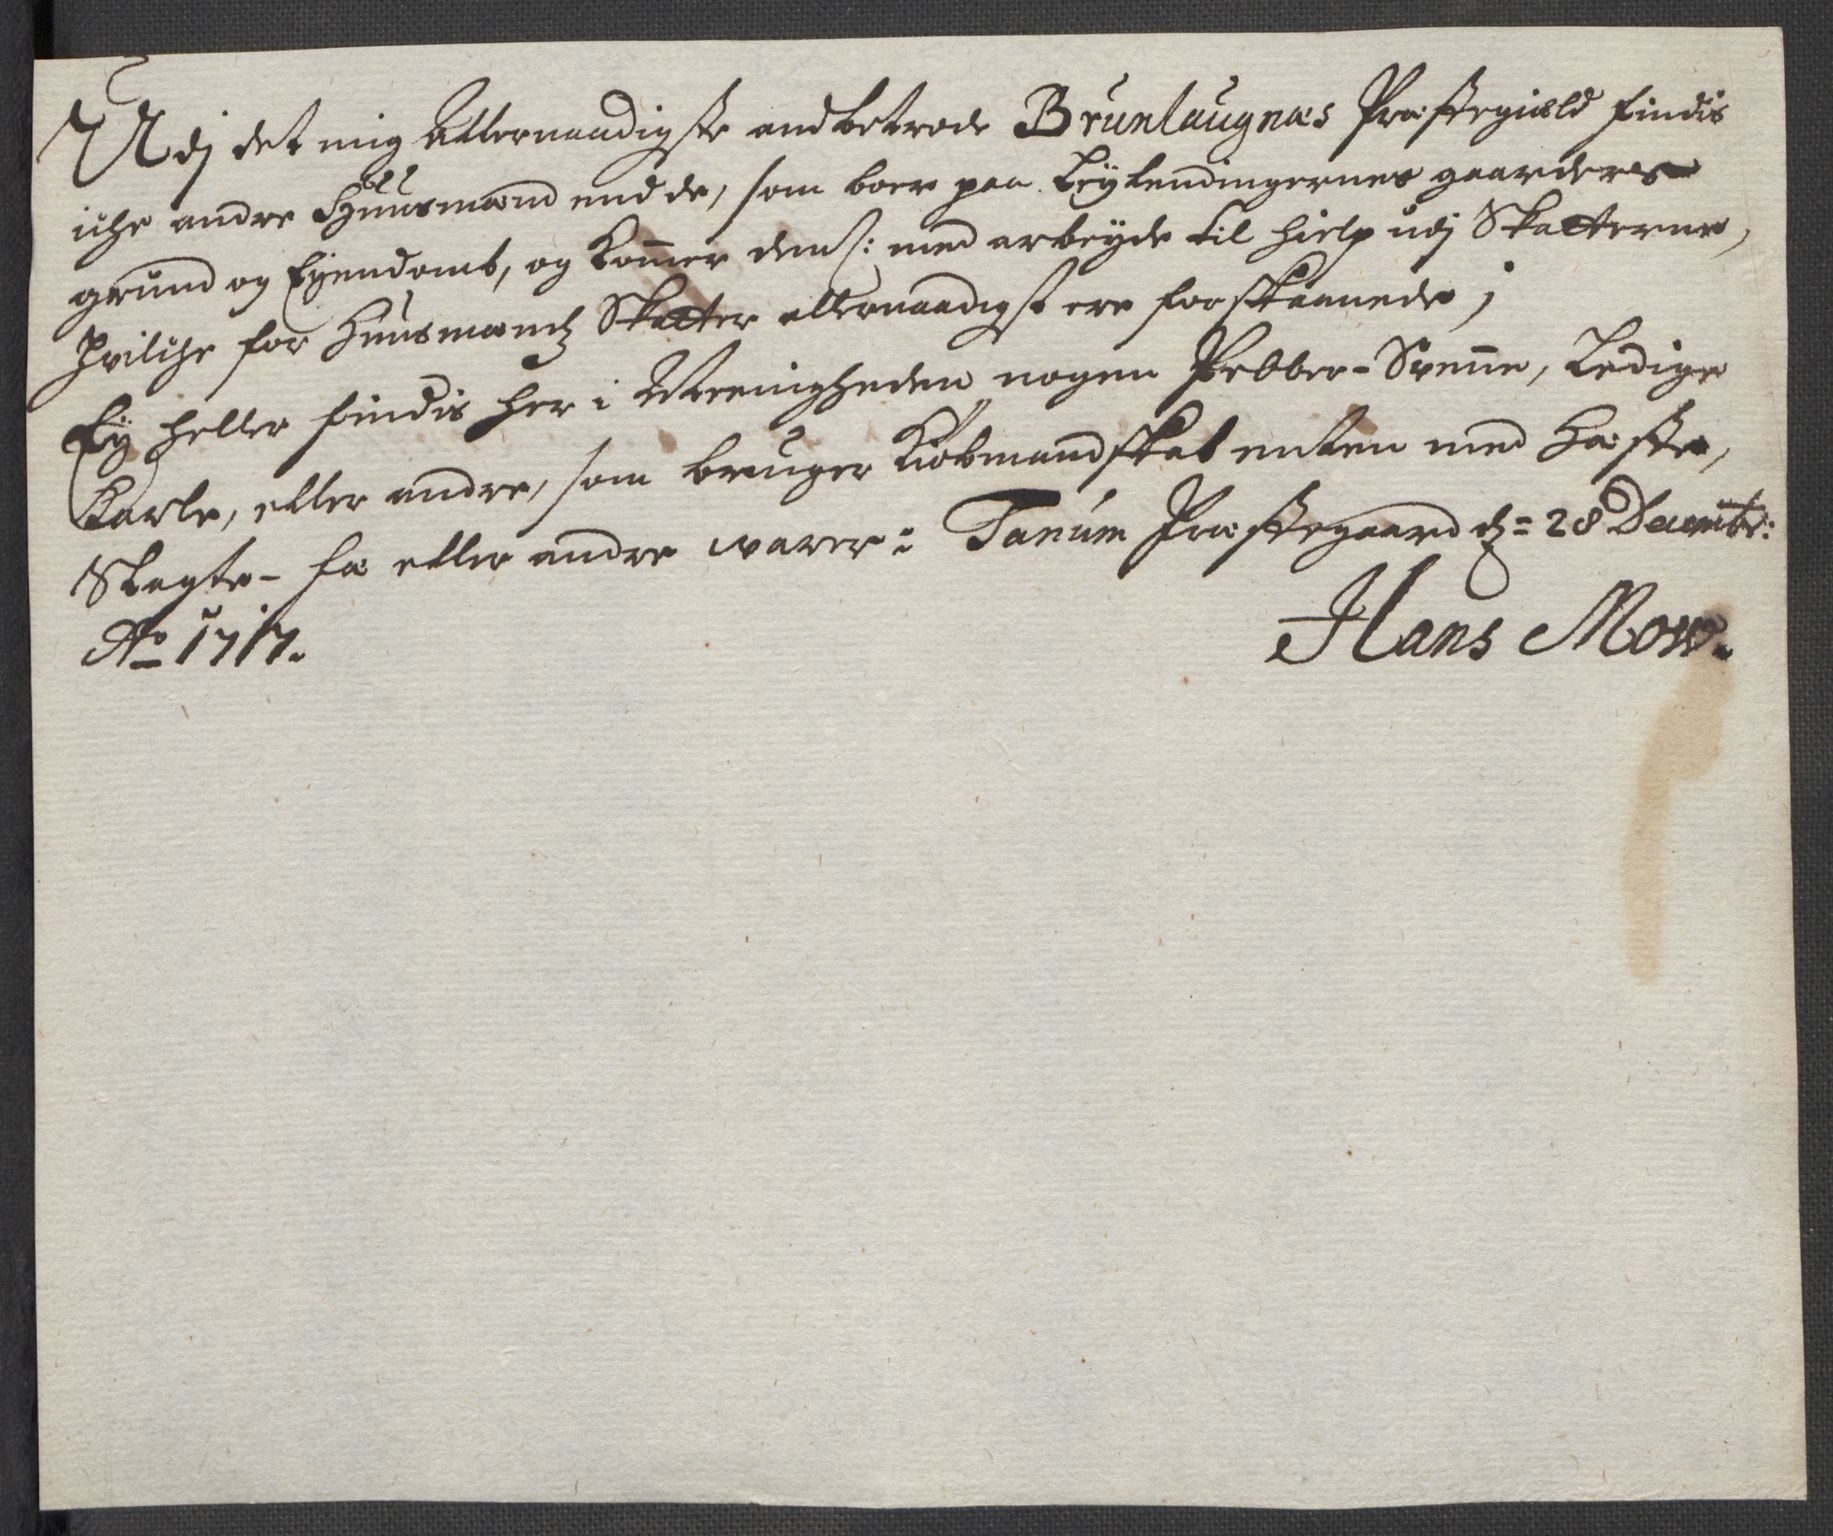 Udj det mig allernaadigste andbetrode Brunlaugnæs Præstegiæld findis
iche andre Huusmænd end de, som boer paa Leylendingernes gaarderes
grund og Eyendomb, og kom̄er dem /: med arbeyde til hielp udj Skatterne,
hvilche for Huusmænds Skatter allernaadigst ere forskaanede;
Ey heller findis her i Meenigheden nogen Pebber-Sven̄e, Ledige
Karle, eller andre, som bruger Kiøbmandskab enten med Hæste,
Slagte- fæ eller andre warer: Tanum Præstegaard d. = 28 Decembr:
Ao 1717.
Hans Mow.